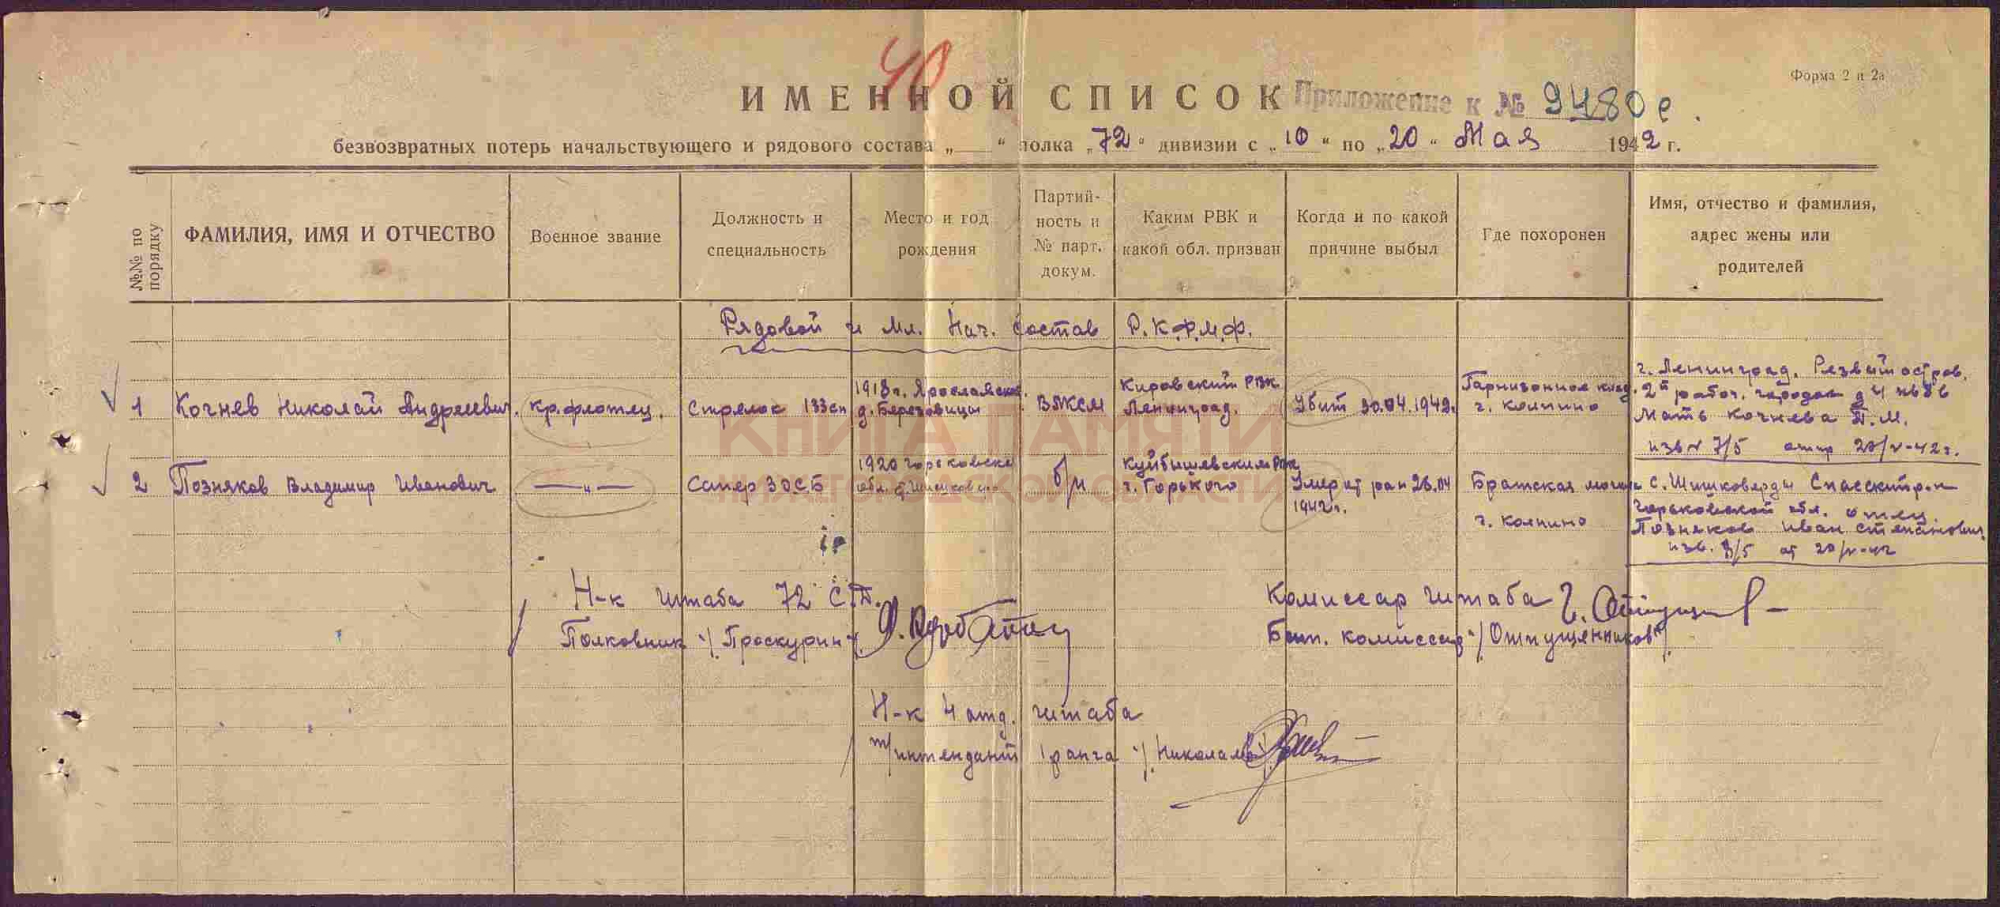 40
Форма 2 и 2а
ИМЕННОЙ СПИСОК
Приложение к № 9480с.
безвозвратных потерь начальствующего и рядового состава „ “ полка „72“ дивизии с „10“ по „20“ Мая 1942 г.
№№ по порядку
ФАМИЛИЯ, ИМЯ И ОТЧЕСТВО
Военное звание
Должность и специальность
Место и год рождения
Партий-
ность и
№ парт.
докум.
Каким РВК и
какой обл. призван
Когда и по какой
причине выбыл
Где похоронен
Имя, отчество и фамилия,
адрес жены или
родителей
Рядовой и Мл. Нач. Состав Р.К.Ф.М.Ф.
1
Кочнев Николай Андреевич.
кр.флотец.
Стрелок 133сп
1918г. Ярославская.
д. Березовицы
ВЛКСМ
Кировский РВК
Ленинград.
Убит 30.04.1942г.
Гарнизонное клад.
г. Колпино
г. Ленинград. Резвый остров.
2й рабоч. городок д 4 кв 6
Мать Кочнева П.М.
изв № 7/5 отпр 20/V-42г.
2
Позняков Владимир Иванович
— „ —
Сапер ЗОСБ
1920 Горьковск
обл.
б/п
Куйбышевским РВК
г. Горького
Умер от ран 26.04
1942г.
Братская могила
г. Колпино
с. Шишковерды Спасский р-н
Горьковской обл. отец
Позняков Иван Степанович
изв. 8/5 от 20/V-42
Н-к штаба 72 С.Д.
Полковник /Проскурин/.
Комиссар штаба
Бат. комиссар /Отпущенников/.
Н-к 4 отд. штаба
т/интендант 1 ранга /Николаев/
КНИГА ПАМЯТИ
НИЖЕГОРОДСКОЙ ОБЛАСТИ